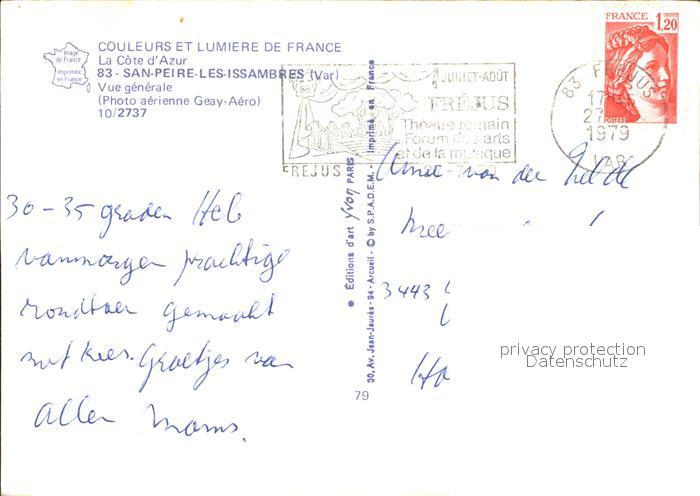 COULEURS ET LUMIERE DE FRANCE
La Côte d'Azur
83 - SAN-PEIRE-LES-ISSAMBRES (Var)
Vue générale
(Photo aérienne Geay-Aéro)
10/2737
Image de France
Imprimée en France
JUILLET-AOÛT
FRÉJUS
Théâtre romain
Forum des arts
et de la musique
FREJUS
FRANCE
1,20
POSTES
83 FREJUS
17
27
1979
VAR
30-35 graden Heb
vanmorgen prachtige
rondtoer gemaakt
met Kees. Groetjes van
Allen Moms.
● Éditions d'art Yvon PARIS
30, Av. Jean-Jaurès - 94 - Arcueil - © by S.P.A.D.E.M. - Imprimé en France
79
van der
3443
privacy protection
Datenschutz